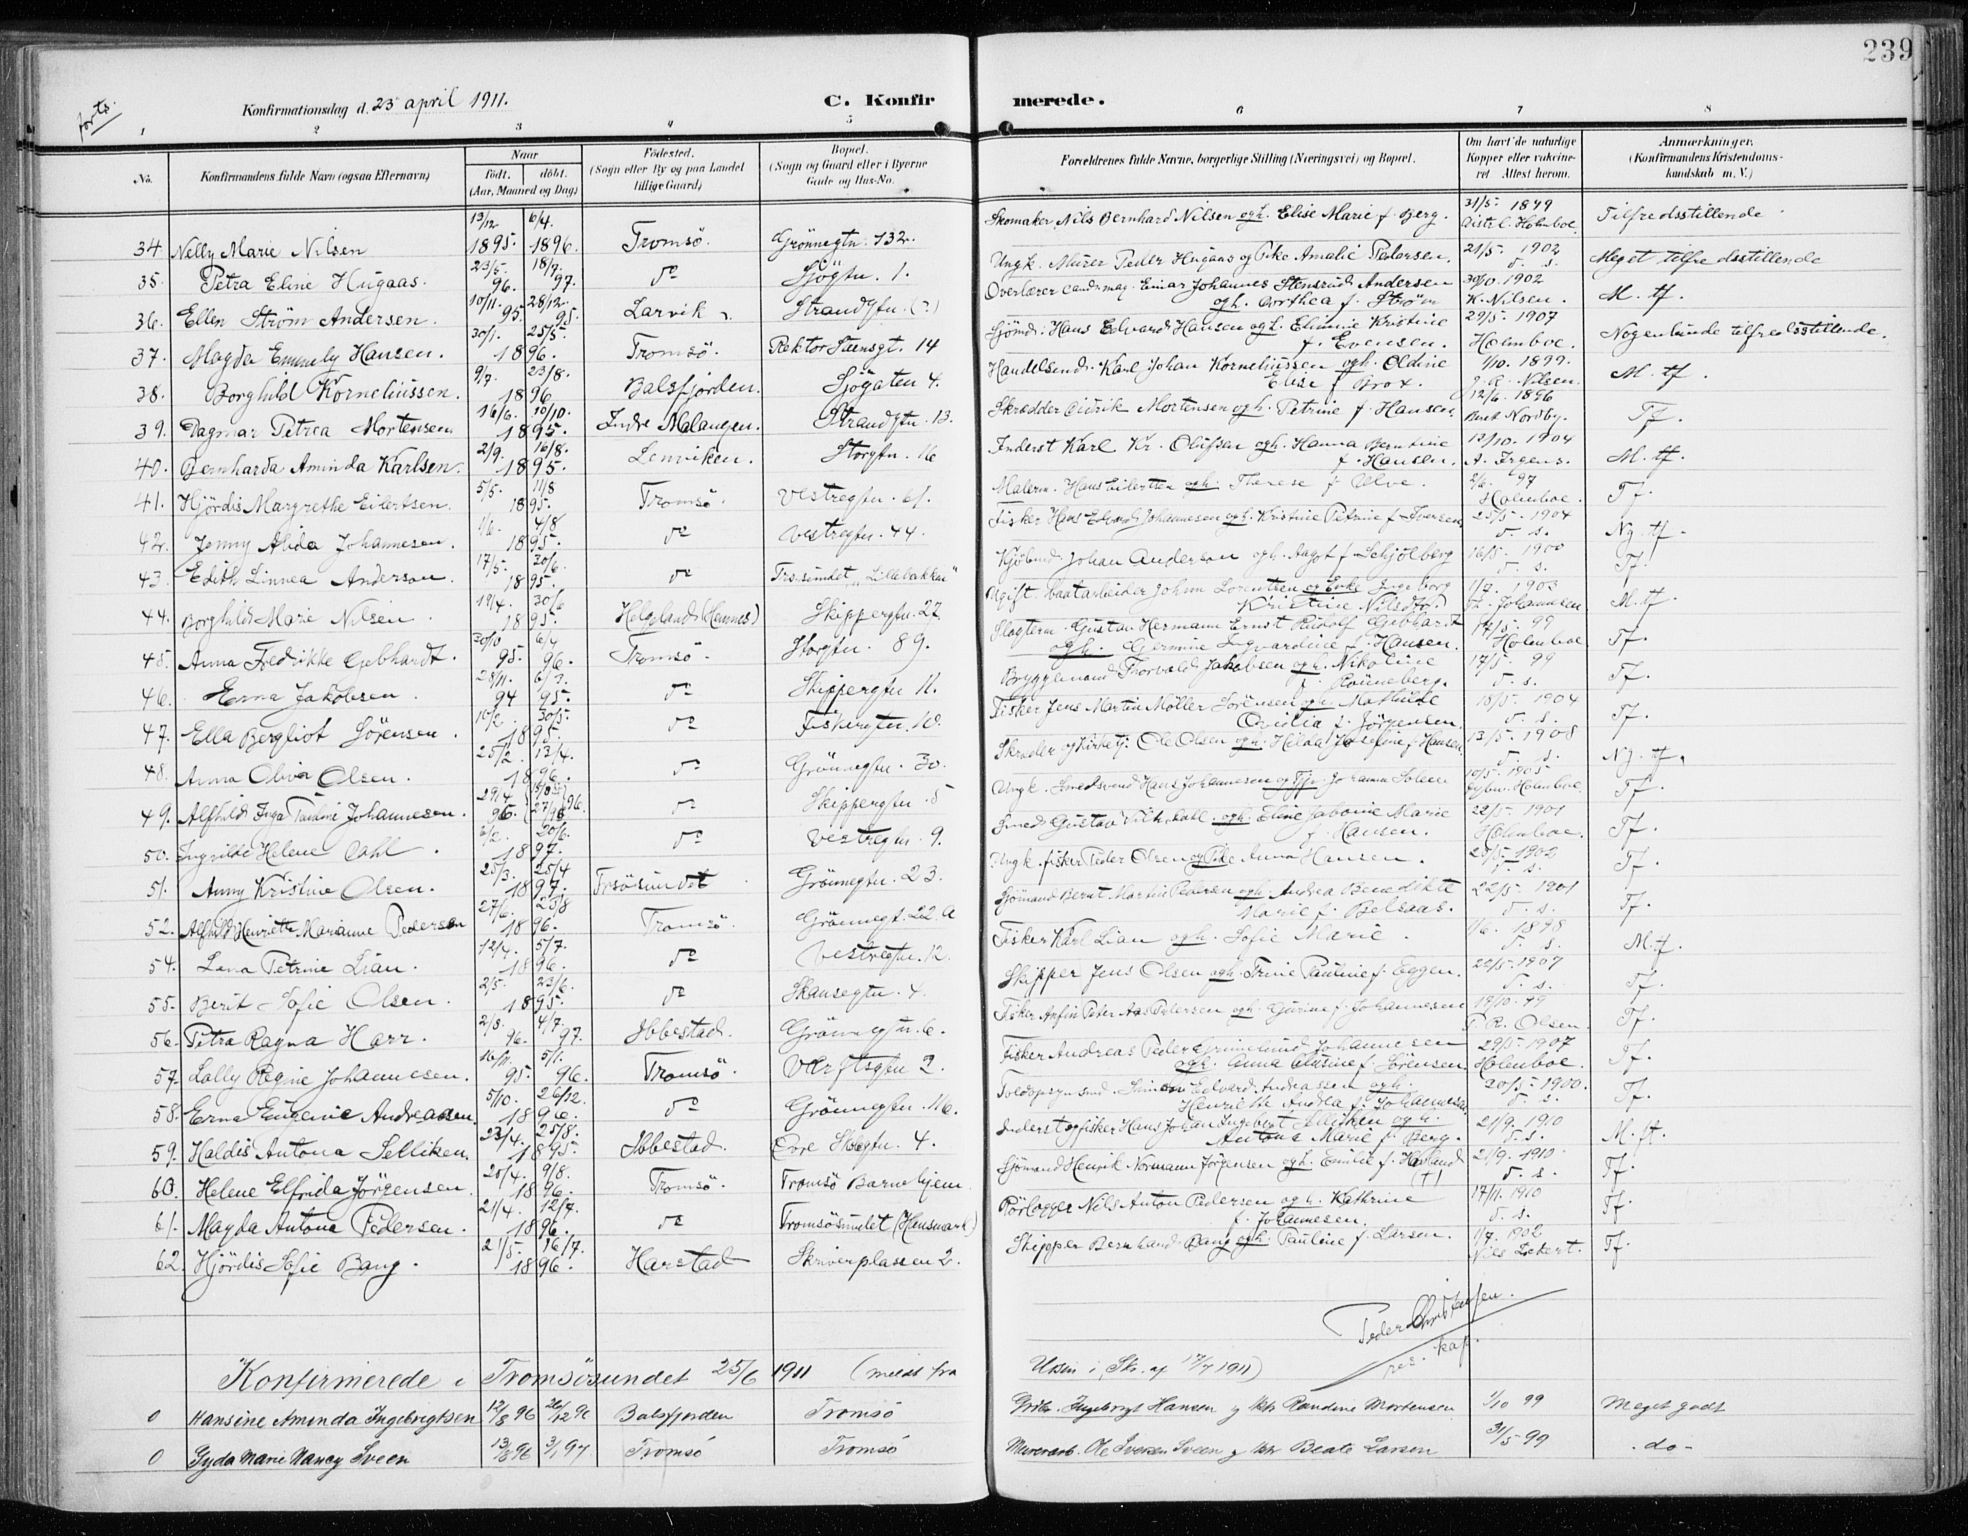 239
forts.
Konfirmationsdag d. 23 april 1911.
C. Konfirmerede.
1 2 3 4 5 6 7 8
No. Konfirmandens fulde Navn (ogsaa Efternavn) Naar født. døbt. (Aar, Maaned og Dag) Fødested. (Sogn eller By og paa Landet tillige Gaard) Bopæl. (Sogn og Gaard eller i Byerne Gade og Hus-No. Forældrenes fulde Navne, borgerlige Stilling (Næringsvei) og Bopæl. Om havt de naturlige Kopper eller vaccineret. Attest herom. Anmærkninger. (Konfirmandens Kristendomskundskab m. V.)
34. Nelly Marie Nilsen 13/12 1895. 6/4. 1896. Tromsö. Grönnegtn. 132. Skomaker Nils Bernhard Nilsen ogh. Elise Marie f. Berg. 31/5 1899 Distrl. Holmboe. Tilfredsstillende
35. Petra Eline Hugaas. 23/5. 96. 18/7. 97. do Sjögtn. 1. Ungk. Murer Peder Hugaas og Pike Amalie Pedersen. 21/5. 1902 d. s. Meget tilfredsstillende
36. Ellen Ström Andersen. 10/11. 95. 28/12. 95. Larvik Strandgtn. (?) Overlærer cand. mag. Einar Johannes Stensrud Andersen ogh. Dorthea f. Ström 30/10. 1902 K. Nilsen. M. tf.
37. Magda Emmely Hansen. 30/1. 25/5. 1896. Tromsö. Rektor Steensgt. 14 Sjömd. Hans Edvard Hansen ogh. Elimine Kristine f. Evensen. 29/5. 1907 Holmboe. Nogenlunde tilfredsstillende.
38. Borghild Korneliussen. 9/7. 23/8. 1896 Balsfjorden. Sjögaten 4. Handelsmd. Karl Johan Korneliussen ogh. Oldine Elise f. Brox. 1/10. 1899. J. A. Nilsen. M. tf.
39. Dagmar Petrea Mortensen 16/6. 10/10. 1895. Indre Malangen. Strandgtn. 13. Skrædder Didrik Mortensen ogh. Petrine f. Hansen. 12/6. 1896 Berit Nordby. Tf.
40. Bernharda Aminda Karlsen. 2/9. 16/8. 1895. Lenviken. Storgtn. 16 Inderst Karl Kr. Olufsen ogh. Hanna Berntine f. Hansen. 13/10. 1904 A. Irgens. M. tf.
41. Hjördis Margrethe Eilertsen. 5/5. 11/8 1895. Tromsö. Vestregtn. 61. Malerm. Hans Eilertsen ogh. Therese f. Ulve. 2/6. 97 Holmboe. Tf.
42. Jenny Alida Johannesen. 1/6. 4/8 1895. do Vestregtn. 44. Fisker Hans Edvard Johannesen ogh. Kristine Petrine f. Iversen. 25/5. 1904 d. s. Ng. tf.
43. Edith Linnea Anderson. 17/5. 30/6. 1895. do Tro.sundet "Lillebakken" Kjöbmd. Johan Anderson ogh. Aagot f. Schjölberg 16/5. 1900 d. s. Tf.
44. Borghild Marie Nilsen. 19/4. 30/6 1895. Helgeland (Hemnes) Skippergtn. 27 Ugift baatarbeider Johan Lorentsen og Enke Ingeborg Kristine Nilsdtr. 1/9. 1903 Johannesen M. tf.
45. Anna Fredrikke Gebhardt. 30/10 95. 6/4 96. Tromsö. Storgtn. 89. Slagterm. Gustav Hermann Ernst Rudolf Gebhardt ogh. Germine Ingvardine f. Hansen. 17/5. 99 Holmboe Tf.
46. Erna Jakobsen. 28/11. 94 6/3. 95. do Skippergtn 11. Bryggemand Thorvald Jakobsen ogh. Nikoline f. Rönneberg. 17/5 99. d. s. Tf.
47. Ella Bergliot Sörensen. 16/2. 30/5. 1895. do Fiskergtn. 10. Fisker Jens Martin Möller Sörensen ogh. Mathilde Ovidia f. Jörgensen. 18/5. 1904 d. s. Tf.
48. Anna Oliva Olsen. 25/2. 13/4. 1896. do Grönnegtn. 30. Skræder og Kirketj. Ole Olsen ogh. Hilda Josefine f. Hansen. 13/5. 1908 d. s. Ng. tf.
49. Alfhild Inga Pauline Johannesen. 29/4. 96. 27/9 96. do Skippergtn. 5 Ungk. Smedsvend Hans Johannesen og Johanna Solem 10/5. 1905 Holmboe. Tf.
50. Ingrilde Helene Dahl. 6/2. 20/6. 1897. do Vestregtn. 9. Smed Gustav Vilh. Dahl. ogh. Eline Jabonie Marie f. Hansen. 22/5. 1901 Holmboe. Tf.
51. Anny Kristine Olsen. 25/3. 25/4 1897. Trsösundet Grönnegtn. 23. Ungk. fisker Peder Olsen og Pike Anna Hansen. 20/5. 1902 d. s. Tf.
52. Alfhild Henriette Marianne Pedersen 27/6. 23/8 1896. Tromsö. Grönnegt. 22 A Sjömand Bernt Martin Pedersen ogh. Andrea Benedikte Marie f. Belsaas. 22/5. 1901 d. s. Tf.
54. Lena Petrine Lian. 12/4. 5/7. 1896. do Vestregtn. 12. Fisker Karl Lian ogh. Sofie Marie. 1/6. 1898 d. s. M. tf.
55. Berit Sofie Olsen. 2/5. 23/6. 1895. do Skansegtn. 4. Skipper Jens Olsen ogh. Trine Pauline f. Eggen. 22/5. 1907 d. s. Tf.
56. Petra Ragna Harr. 2/8. 96. 4/7. 97. Ibbestad. Grönnegtn. 6. Fisker Anfin Peter Aas Pedersen ogh. Gurine f. Johannesen 19/10. 99 P. R. Olsen. Tf.
57. Lolly Regine Johannesen. 16/11. 95. 5/1. 96. Tromsö. Værftsgtn 2. Fisker Andreas Peder Grimelund Johannesen ogh. Anna Alusine f. Sörensen. 29/5. 1907 Holmboe. Tf.
58. Erna Eugenie Andreassen. 5/10. 26/12. 1896. do Grönnegtn. 116. Toldopsynsmd. Simeon Edvard Andreassen ogh. Henriette Andrea f. Johannesen 20/5. 1900. d. s. Tf.
59. Haldis Antona Selliken. 23/4. 25/8. 1895. Ibbestad. Övre Skolegtn. 4. Inderst og fisker Hans Johan Ingebert Selliken ogh. Antona Marie f. Berg. 21/9. 1910 d. s. M. ft.
60. Helene Elfrida Jörgensen. 25/4. 9/8. 1896. Tromsö. Tromsö Barnehjem Sjömand Henrik Normann Jörgensen ogh. Emilie f. Havland (†) 21/9. 1910. d. s. Tf.
61. Magda Antona Pedersen. 21/4. 12/7. 1896. do Tromsösundet (Hansmark) Rörlægger Nils Anton Pedersen ogh. Kathrine f. Johannesen. 17/11. 1910 d. s. Tf.
62. Hjördis Sofie Bang. 21/5. 16/7. 1896. Harstad Skriverplassen 2. Skipper Bernhard Bang ogh. Pauline f. Larsen. 1/7. 1902 Nils Eckert. Tf.
Peder Christensen.
res. kap.
Konfirmerede i Tromsösundet 25/6 1911 (meldt fra i Skr. af 17/7 1911)
0 Hansine Aminda Ingebrigtsen 12/8 96 26/12 96 Balsfjorden Tromsö Ingebrigt Hansen og Hstr Randine Mortensen 1/10 99 Meget godt
0 Gyda Marie Nancy Sveen 13/8 96 3/1 97 Tromsö Tromsö Murerarb. Ole Iversen Sveen og Hstr Beate Larsen 31/5 99 - do -